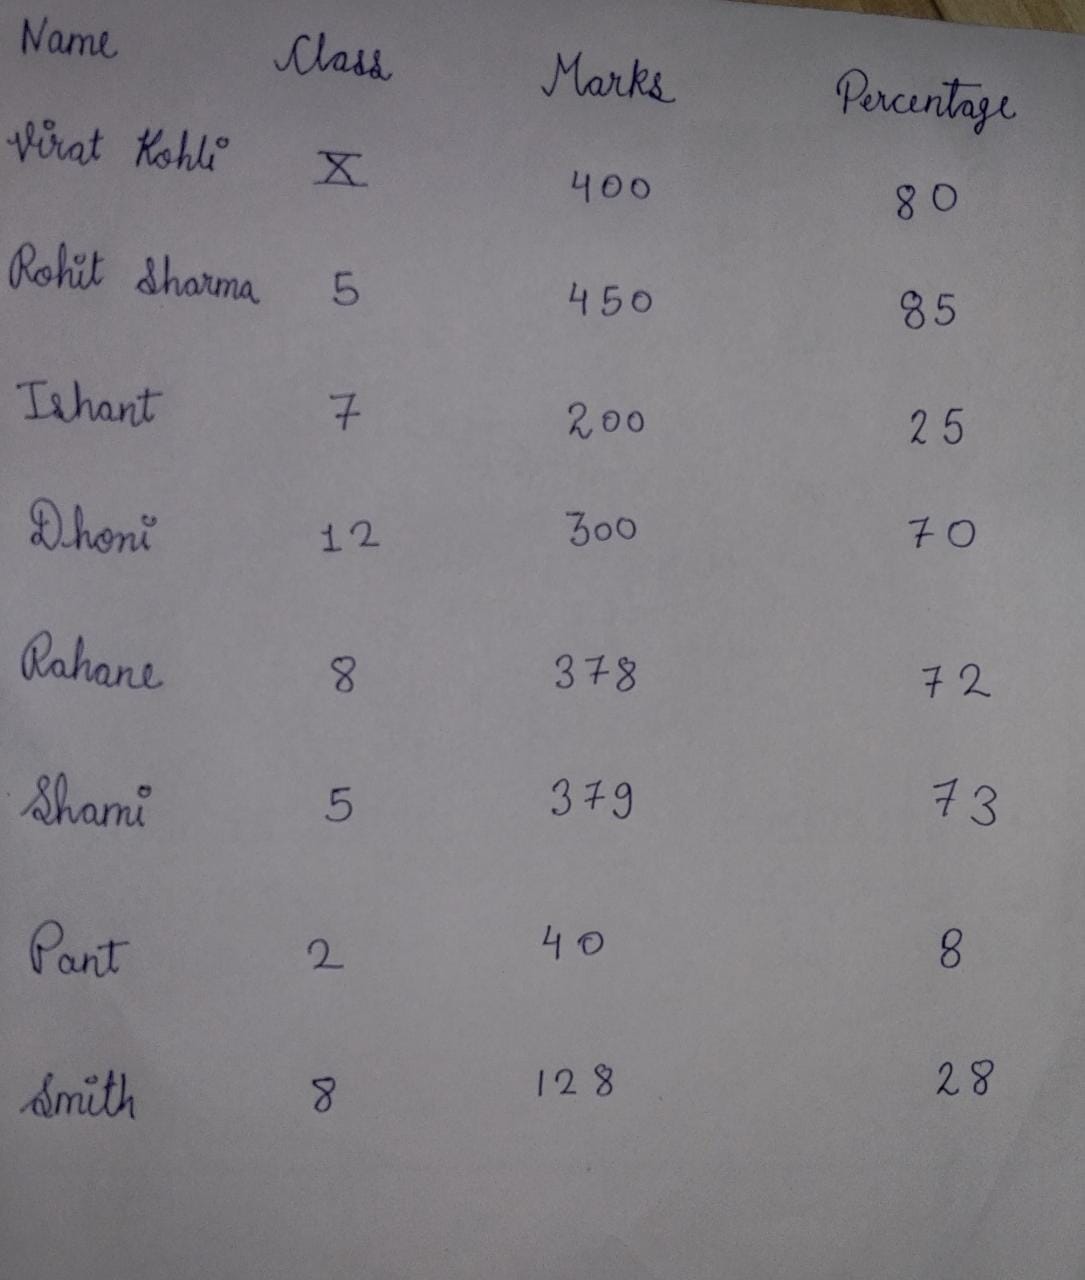 Name Class Marks Percentage
Virat Kohli X 400 80
Rohit Sharma 5 450 85
Ishant 7 200 25
Dhoni 12 300 70
Rahane 8 378 72
Shami 5 379 73
Pant 2 40 8
Smith 8 128 28